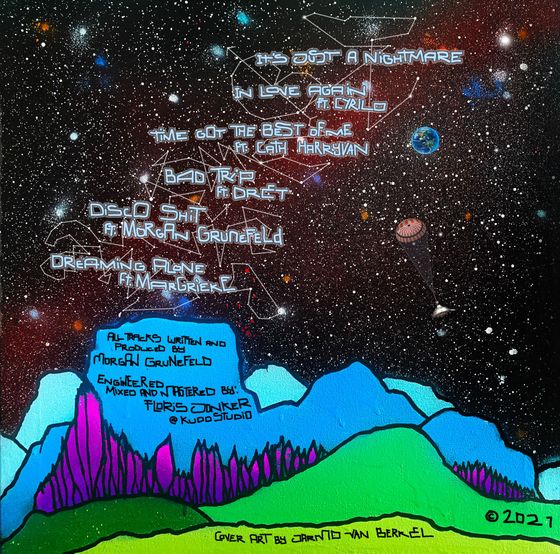 IT'S JUST A NIGHTMARE
IN LOVE AGAIN
FT. CYRILO
TIME GOT THE BEST OF ME
FT. CATH HARRYVAN
BAD TRIP
FT. DRET
DISCO SHIT
FT. MORGAN GRUNEFELD
DREAMING ALONE
FT. MARGRIEKE
ALL TRACKS WRITTEN AND
PRODUCED BY
MORGAN GRUNEFELD
ENGINEERED
MIXED AND MASTERED BY:
FLORIS JONKER
@ KUDO STUDIO
© 2021
COVER ART BY JARNO VAN BERKEL